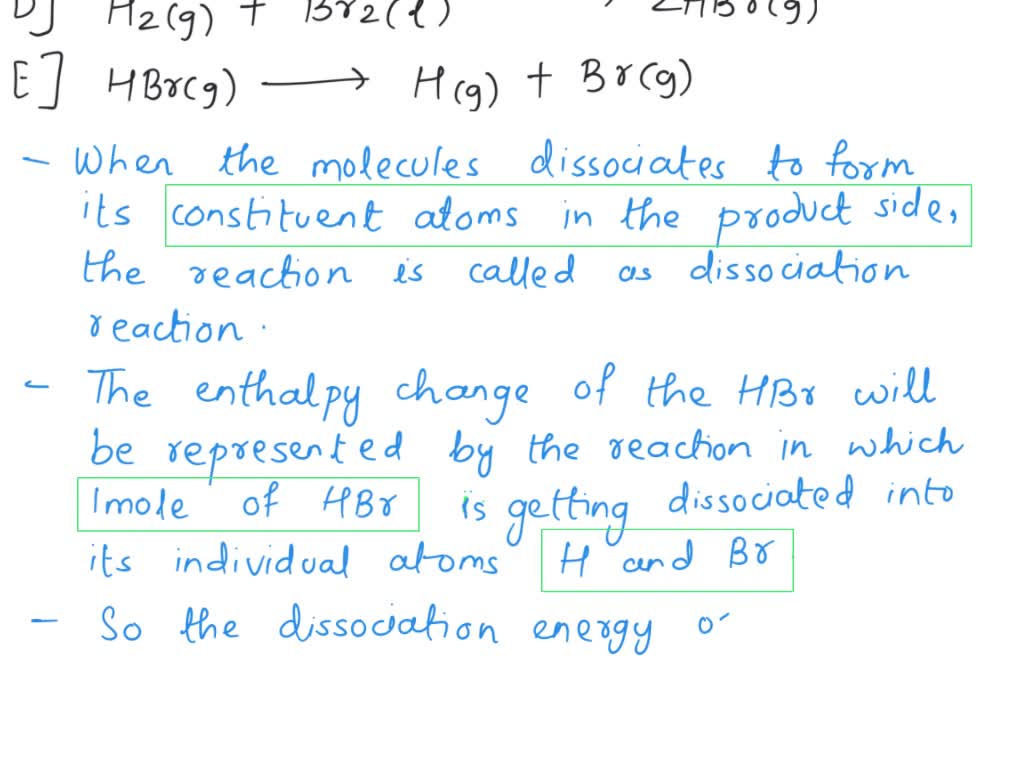 D] H2(g) + Br2(l) → 2HBr(g)
E] HBr(g) ⟶ H(g) + Br(g)
- When the molecules dissociates to form
its constituent atoms in the product side,
the reaction is called as dissociation
reaction.
- The enthalpy change of the HBr will
be represented by the reaction in which
1mole of HBr is getting dissociated into
its individual atoms H and Br
- So the dissociation energy